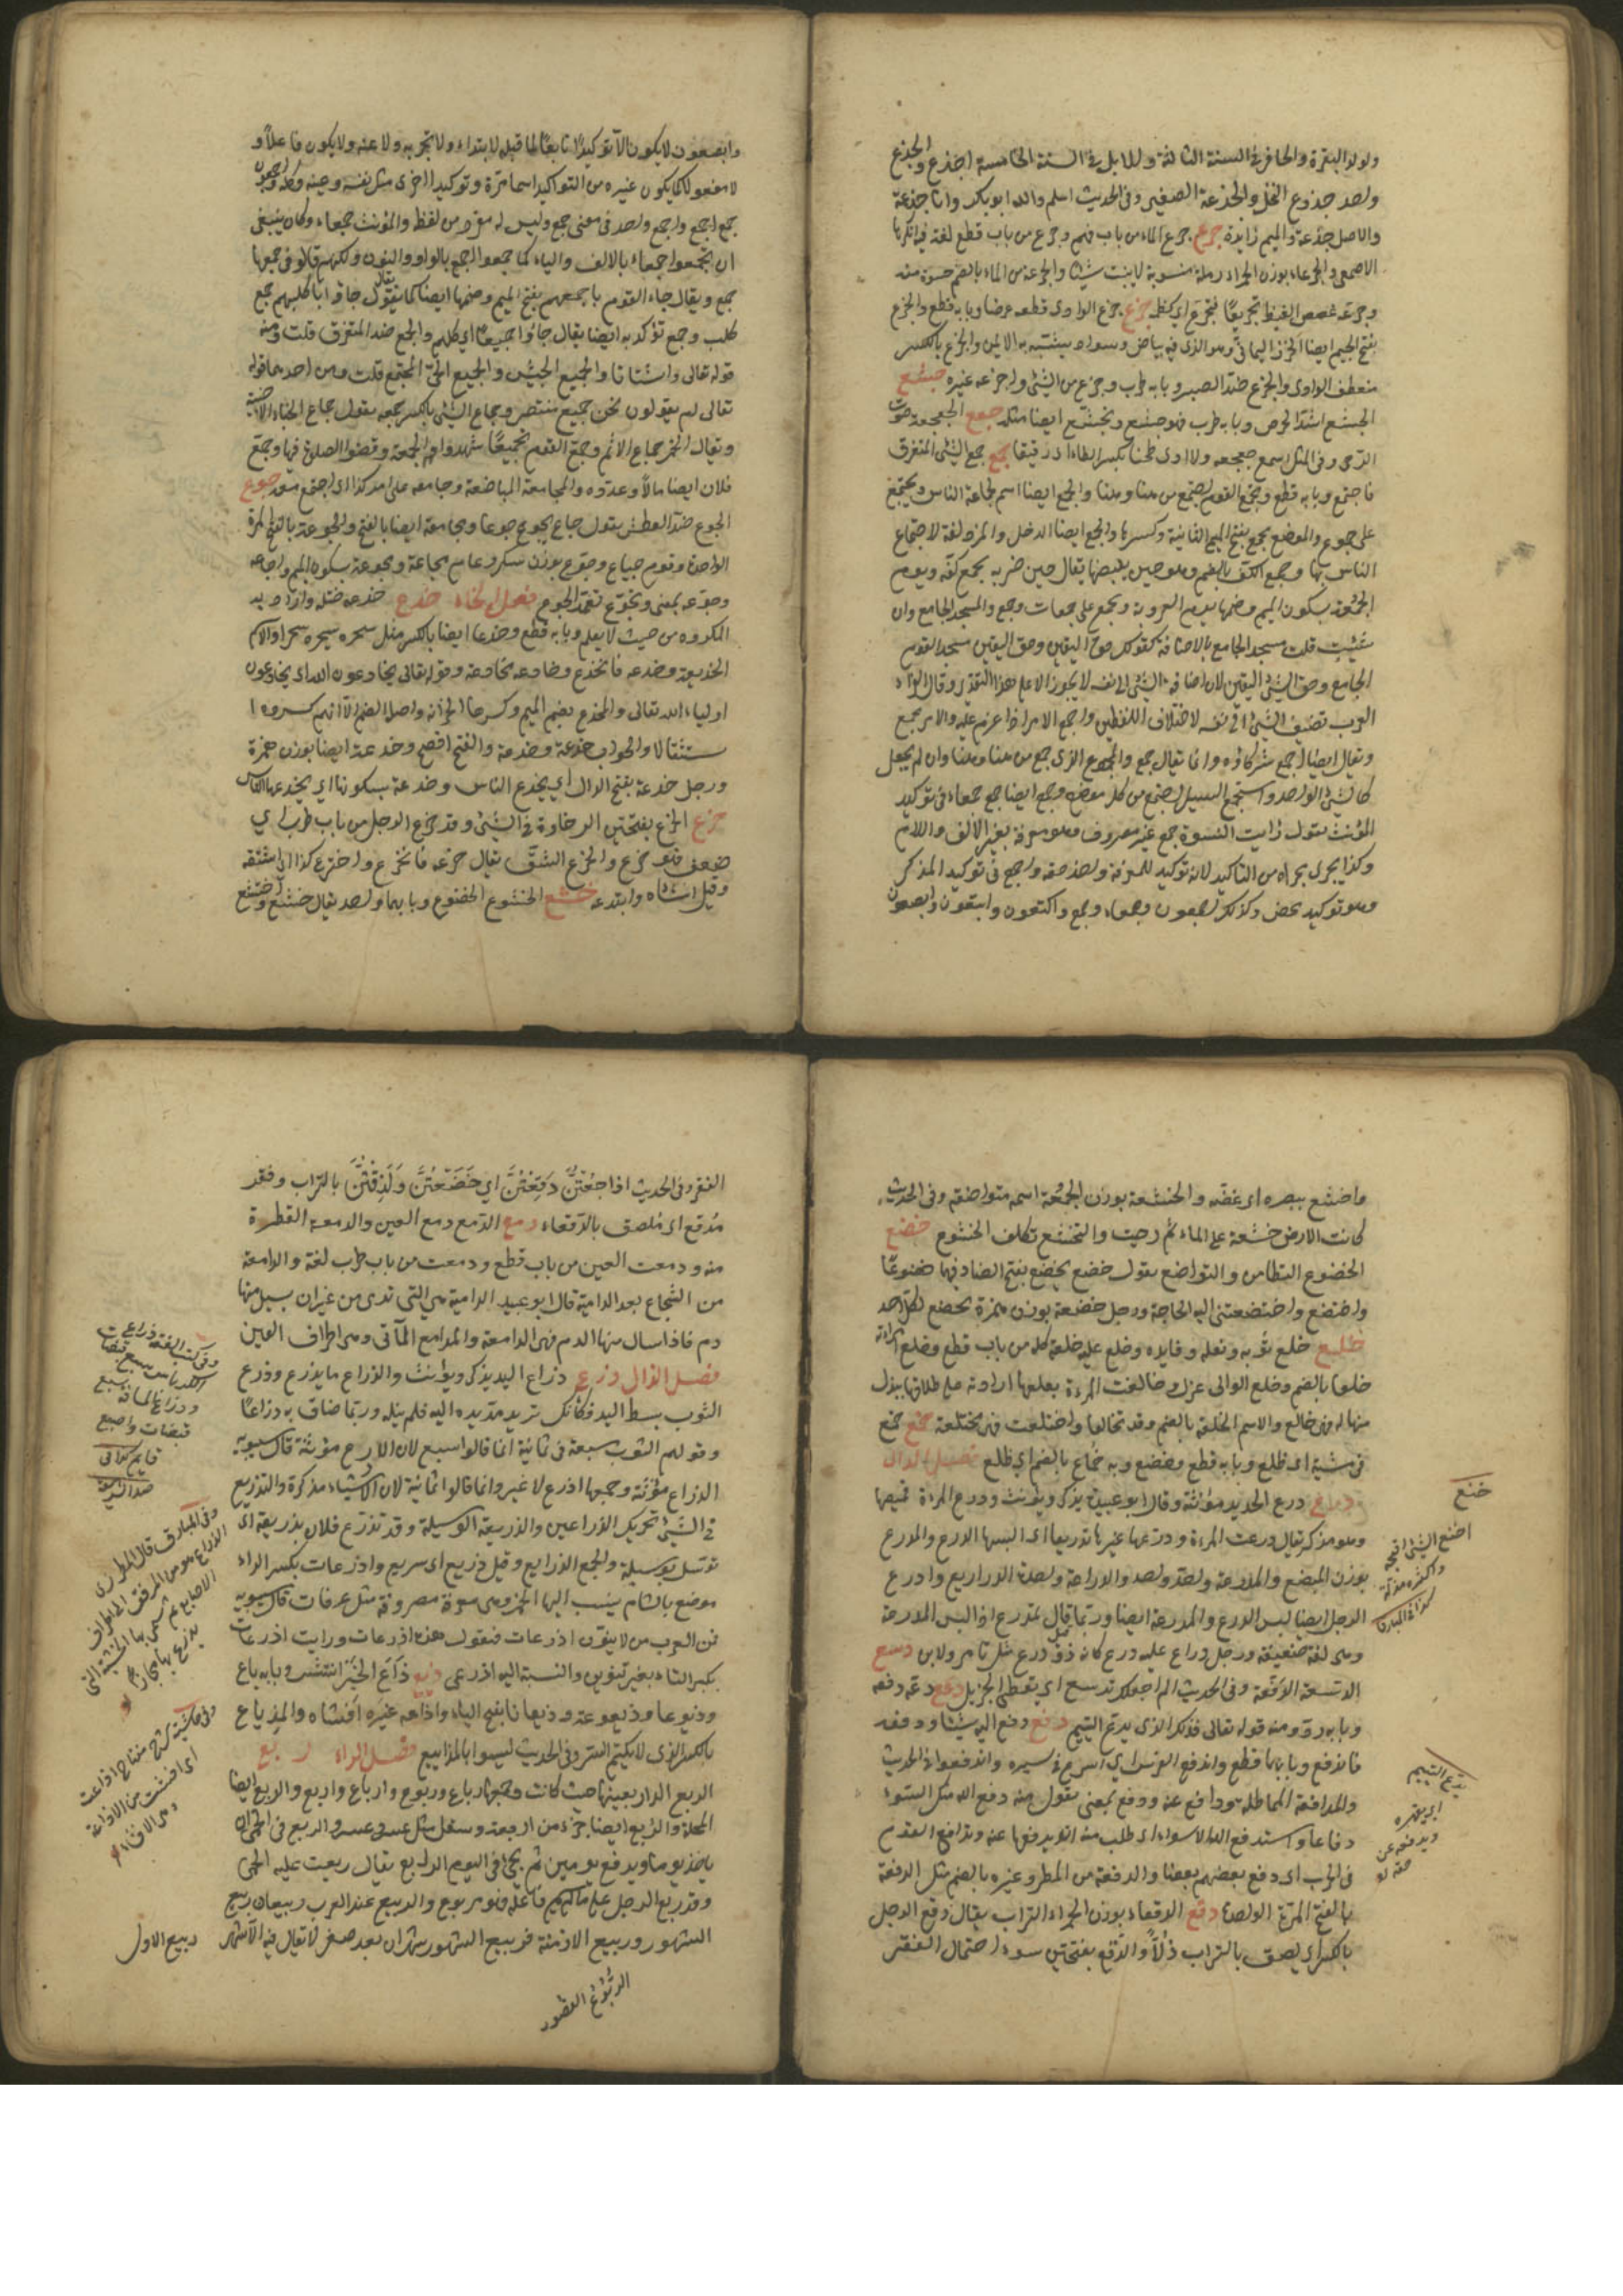 ولولد البقرة والحافر فى السنة الثالثة وللابل فى السنة الخامسة اجذع والجذع
واحد جذوع النخل والجذعة الصغير وفى الحديث اسلم والله ابو بكر وانا جذعة
والاصل جذعة والميم زايدة جرع جرع الماء من باب فهم وجرع من باب قطع لغة فيه انكرها
الاصمعى والجرعاء بوزن الحمراء رملة مستوية لا تنبت شيئا والجرعة من الماء بالضم حسوة منه
وجرعه غصص الغيظ تجريعا فتجرع اى كظم جزع جزع الوادى قطعه عرضا وبابه قطع والجزع
بفتح الجيم ايضا الخرز اليمانى وهو الذى فيه بياض وسواد يشبه به الاعين والجزع بالكسر
منعطف الوادى والجزع ضد الصبر وبابه طرب وجزع من الشئ واجزعه غيره جشع
الجشع اشد الحرص وبابه طرب فهو جشع وتجشع ايضا مثله جعع الجعجعة صوت
الرحى وفى المثل اسمع جعجعة ولا ارى طحنا بكسر الطاء اى دقيقا جمع جمع الشئ المتفرق
فاجتمع وبابه قطع وتجمع القوم اجتمع من هنا وهنا والجمع ايضا اسم لجماعة الناس ويجمع
على جموع والموضع مجمع بفتح الميم الثانية وكسرها والجمع ايضا الدقل والمزدلفة لاجتماع
الناس بها وجمع الكف بالضم وهو حين يقبضها يقال حين ضربه بجمع كفه ويوم
الجمعة بسكون الميم وضمها يوم العروبة ويجمع على جمعات وجمع والمسجد الجامع وان
شئت قلت مسجد الجامع بالاضافة كقولك حق اليقين وحق اليقين مسجد القوم
الجامع وحق الشئ اليقين لان اضافة الشئ الى نفسه لا يجوز الا على هذا التقدير وقال الفراء
العرب تضيف الشئ الى نفسه لاختلاف اللفظين واجمع الامر اذا عزم عليه والامر مجمع
ويقال ايضا اجمع شركاؤه وانما يقال جمع والمجموع الذى جمع من هنا وهنا وان لم يجعل
كالشئ الواحد واستجمع السيل اجتمع من كل موضع وجمع ايضا جمع جمعاء فى توكيد
المؤنث تقول رايت النسوة جمع غير مصروف وهو معرفة بغير الالف واللام
وكذا يجرى مجراه من التاكيد لانه توكيد للمعرفة واخذ حقه اجمع فى توكيد المذكر
وهو توكيد محض وكذلك اجمعون وجمعاء وجمع واكتعون وابتعون وابصعون
وابصعون لا يكون الا توكيدا تابعا لما قبله لا يبتداء ولا يخبر به ولا عنه ولا يكون فاعلا و
لا مفعولا كما يكون غيره من التواكيد اسما مرة وتوكيدا اخرى مثل نفسه وعينه وكله واجمعون
جمع اجمع واجمع واحد فى معنى جمع وليس له مفرد من لفظه والمؤنث جمعاء وكان ينبغى
ان يجمعوا جمعاء بالالف والتاء كما جمعوا اجمع بالواو والنون ولكنهم قالوا فى جمعها
جمع ويقال جاء القوم باجمعهم بفتح الميم وضمها ايضا كما يقال جاؤا باكلبهم جمع
كلب وجمع توكد به ايضا يقال جاؤا جميعا اى كلهم والجمع ضد المتفرق قلت ومنه
قوله تعالى واشتاتا والجميع الجيش والجميع الحى المجتمع قلت ومن احدهما قوله
تعالى ام يقولون نحن جميع منتصر وجماع الشئ بالكسر جمعه يقول جماع الخباء الاخبية
ويقال الخمر جماع الاثم وجمع القوم تجميعا شهدوا الجمعة وقضوا الصلوة فيها وجمع
فلان ايضا مالا وعدده والمجامعة المباضعة وجامعه على امر كذا اى اجتمع معه جوع
الجوع ضد العطش تقول جاع يجوع جوعا ومجاعة ايضا بالفتح والجوعة بالفتح المرة
الواحدة وقوم جياع وجوع بوزن سكر وعام مجاعة ومجوعة بسكون الجيم واجاعه
وجوعه بمعنى وتجوع تعمد الجوع فصل الخاء خدع خدعه ختله واراد به
المكروه من حيث لا يعلم وبابه قطع وخدعا ايضا بالكسر مثل سحره يسحره سحرا والاسم
الخديعة وخدعه فانخدع وخادعه مخادعة وقوله تعالى يخادعون الله اى يخادعون
اولياء الله تعالى والمخدع بضم الميم وكسرها الخزانة واصله الضم الا انهم كسروه ا
ستثقالا والحرب خدعة وخدعة والفتح افصح وخدعة ايضا بوزن همزة
ورجل خدعة بفتح الدال اى يخدع الناس وخدعة بسكونها اى يخدعه الناس
خرع الخرع بفتحتين الرخاوة فى الشئ وقد خرع الرجل من باب طرب اى
ضعف فهو خرع والخرع الشق يقال خرعه فانخرع واخترع كذا اى اشتقه
وقيل انشاه وابتدعه خشع الخشوع الخضوع وبابهما واحد يقال خشع واختشع
واخشع ببصره اى غضه والخشعة بوزن الجمعة اسمه متواضعة وفى الحديث
كانت الارض خشعة على الماء ثم دحيت والتخشع تكلف الخشوع خضع
الخضوع التطامن والتواضع تقول خضع يخضع بفتح الضاد فيهما خضوعا
واختضع واختضعتنى اليه الحاجة ورجل خضعة بوزن همزة يخضع لكل احد
خلع خلع ثوبه ونعله وقايده وخلع عليه خلعة كله من باب قطع وخلع امرأته
خلعا بالضم وخلع الوالى عزل وخالعت المرءة بعلها ارادته على طلاقها ببذل
منها له فهى خالع والاسم الخلعة بالضم وقد تخالعا واختلعت فهى مختلعة خمع خمع
فى مشيه اى ظلع وبابه قطع وخضع وبه خماع بالضم اى ظلع فصل الدال
درع درع الحديد مؤنثة وقال ابو عبيدة يذكر ويؤنث ودرع المرءة قميصها
وهو مذكر يقال درعت المرءة ودرعها غيرها تدريعا اى البسها الدرع والمدرع
بوزن المبضع والمدرعة واحد والدراعة واحدة الدراريع وادرع
الرجل ايضا لبس الدرع والمدرعة ايضا وربما قال تمدرع اذا لبس المدرعة
وهى لغة ضعيفة ورجل دراع عليه درع كانه ذو درع مثل تامر ولابن دسع
الدسعة الدفعة وفى الحديث الم اجعلك تدسع اى تعطى الجزيل دعع دعه دفعه
وبابه رد ومنه قوله تعالى فذلك الذى يدع اليتيم دفع دفع اليه شيئا ودفعه
فاندفع وبابهما قطع واندفع الفرس اى اسرع فى سيره واندفعوا فى الحديث
والمدافعة المماطلة ودافع عنه ودفع بمعنى تقول منه دفع الله عنك السوء
دفاعا واستدفع الله الاسواء اى طلب منه ان يدفعها عنه وتدافع القوم
فى الحرب اى دفع بعضهم بعضا والدفعة من المطر وغيره بالضم مثل الدفقة
بالفتح المرة الواحدة دقع الدقعاء بوزن الحمراء التراب يقال دقع الرجل
بالكسر اى لصق بالتراب ذلا والدقع بفتحتين سوء احتمال الفقر
خنع
اخنع الشئ اقبحه
يدع اليتيم
اى يقهره
ويدفعه عن
حقه
الفقر وفى الحديث اذا جعتن دقعتن اى خضعتن ولزقتن بالتراب وفقر
مدقع اى ملصق بالدقعاء دمع الدمع دمع العين والدمعة القطرة
منه ودمعت العين من باب قطع ودمعت من باب طرب لغة والدامعة
من الشجاج بعد الدامية قال ابو عبيد الدامية هى التى تدمى من غير ان يسيل منها
دم فاذا سال منها الدم فهى الدامعة والمدامع المآقى وهى اطراف العين
فصل الذال ذرع ذراع اليد يذكر ويؤنث والذراع ما يذرع وذرع
الثوب بسط اليد فكانك تريد مد يده اليه فلم ينله وربما ضاق به ذراعا
وقولهم الثوب سبعة فى ثمانية انما قالوا سبع لان الاذرع مؤنثة قال سيبويه
الذراع مؤنثة وجمعها اذرع لا غير وانما قالوا ثمانية لان الاشياء مذكرة والتذريع
فى الشئ تحريك الذراعين والذريعة الوسيلة وقد تذرع فلان بذريعة اى
توسل بوسيلة والجمع الذرايع وقتل ذريع اى سريع واذرعات بكسر الراء
موضع بالشام ينسب اليها الخمر وهى معرفة مصروفة مثل عرفات قال سيبويه
فمن العرب من لا ينون اذرعات فيقول هذه اذرعات ورايت اذرعات
بكسر التاء بغير تنوين والنسبة اليه اذرعى ذيع ذاع الخبر انتشر وبابه باع
وذيوعا وذيعوعة وذيعانا بفتح الياء واذاعه غيره افشاه والمذياع
بالكسر الذى لا يكتم السر وفى الحديث ليسوا بالمذاييع فصل الراء ربع
الربع الدار بعينها حيث كانت وجمعها رباع وربوع وارباع واربع والربع ايضا
المحلة والربع ايضا جزء من اربعة ويثقل مثل عسر وعسر والربع فى الحمى ان
ياخذ يوما ويدع يومين ثم يجئ فى اليوم الرابع يقال ربعت عليه الحمى
وقد ربع الرجل على ما لم يسم فاعله فهو مربوع والربيع عند العرب ربيعان ربيع
الشهور وربيع الازمنة فربيع الشهور شهران بعد صفر لا يقال فيه الا شهر
ربيع الاول
وفى المبارق قال المطرزى
الذراع هو من المرفق الى اطراف
الاصابع ثم سمى بها الخشبة التى
يذرع بها مجازا